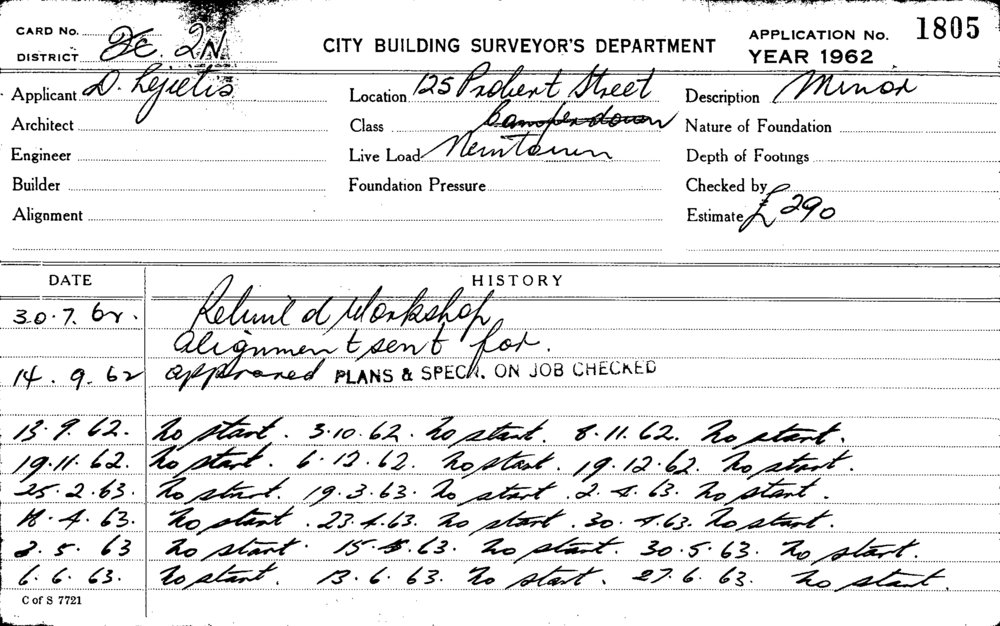 CARD No.
DISTRICT 2c 2N
CITY BUILDING SURVEYOR'S DEPARTMENT
APPLICATION No. 1805
YEAR 1962
Applicant D. Lejietis Location 125 Probert Street Description Minor
Architect Class Camperdown Nature of Foundation
Engineer Live Load Newtown Depth of Footings
Builder Foundation Pressure Checked by
Alignment Estimate £290
DATE HISTORY
30.7.62. Rebuild Workshop
alignment sent for.
14.9.62 approved PLANS & SPECN. ON JOB CHECKED
13.9.62. No start. 3.10.62. No start. 8.11.62. No start.
19.11.62. No start. 6.12.62. No start. 19.12.62. No start.
25.2.63. No start. 19.3.63. No start. 2.4.63. No start.
18.4.63. No start. 23.4.63. No start. 30.4.63. No start.
2.5.63 No start. 15.5.63. No start. 30.5.63. No start.
6.6.63. No start. 13.6.63. No start. 27.6.63. No start.
C of S 7721